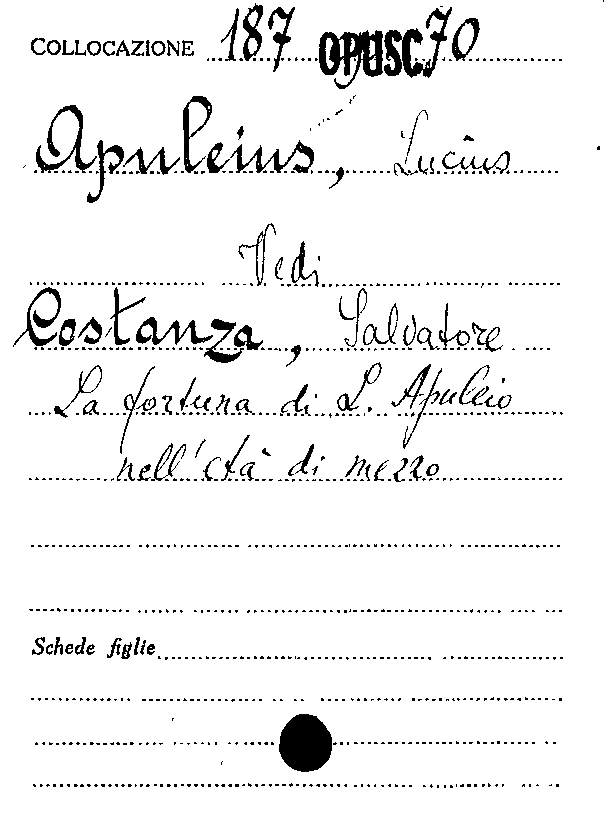 COLLOCAZIONE 187 OPUSC. 70
Apuleius, Lucius
Vedi
Costanza, Salvatore
La fortuna di L. Apuleio
nell'età di mezzo
Schede figlie